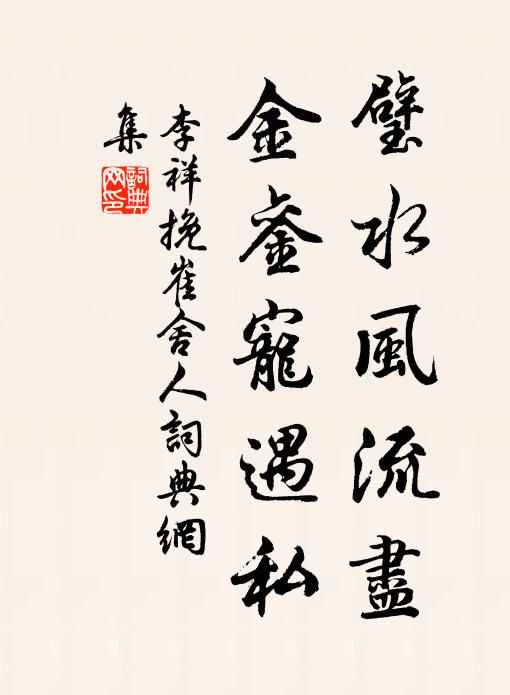 璧水風流盡
金鑾寵遇私
李祥挽崔舍人詞典網
集
詞典
网印